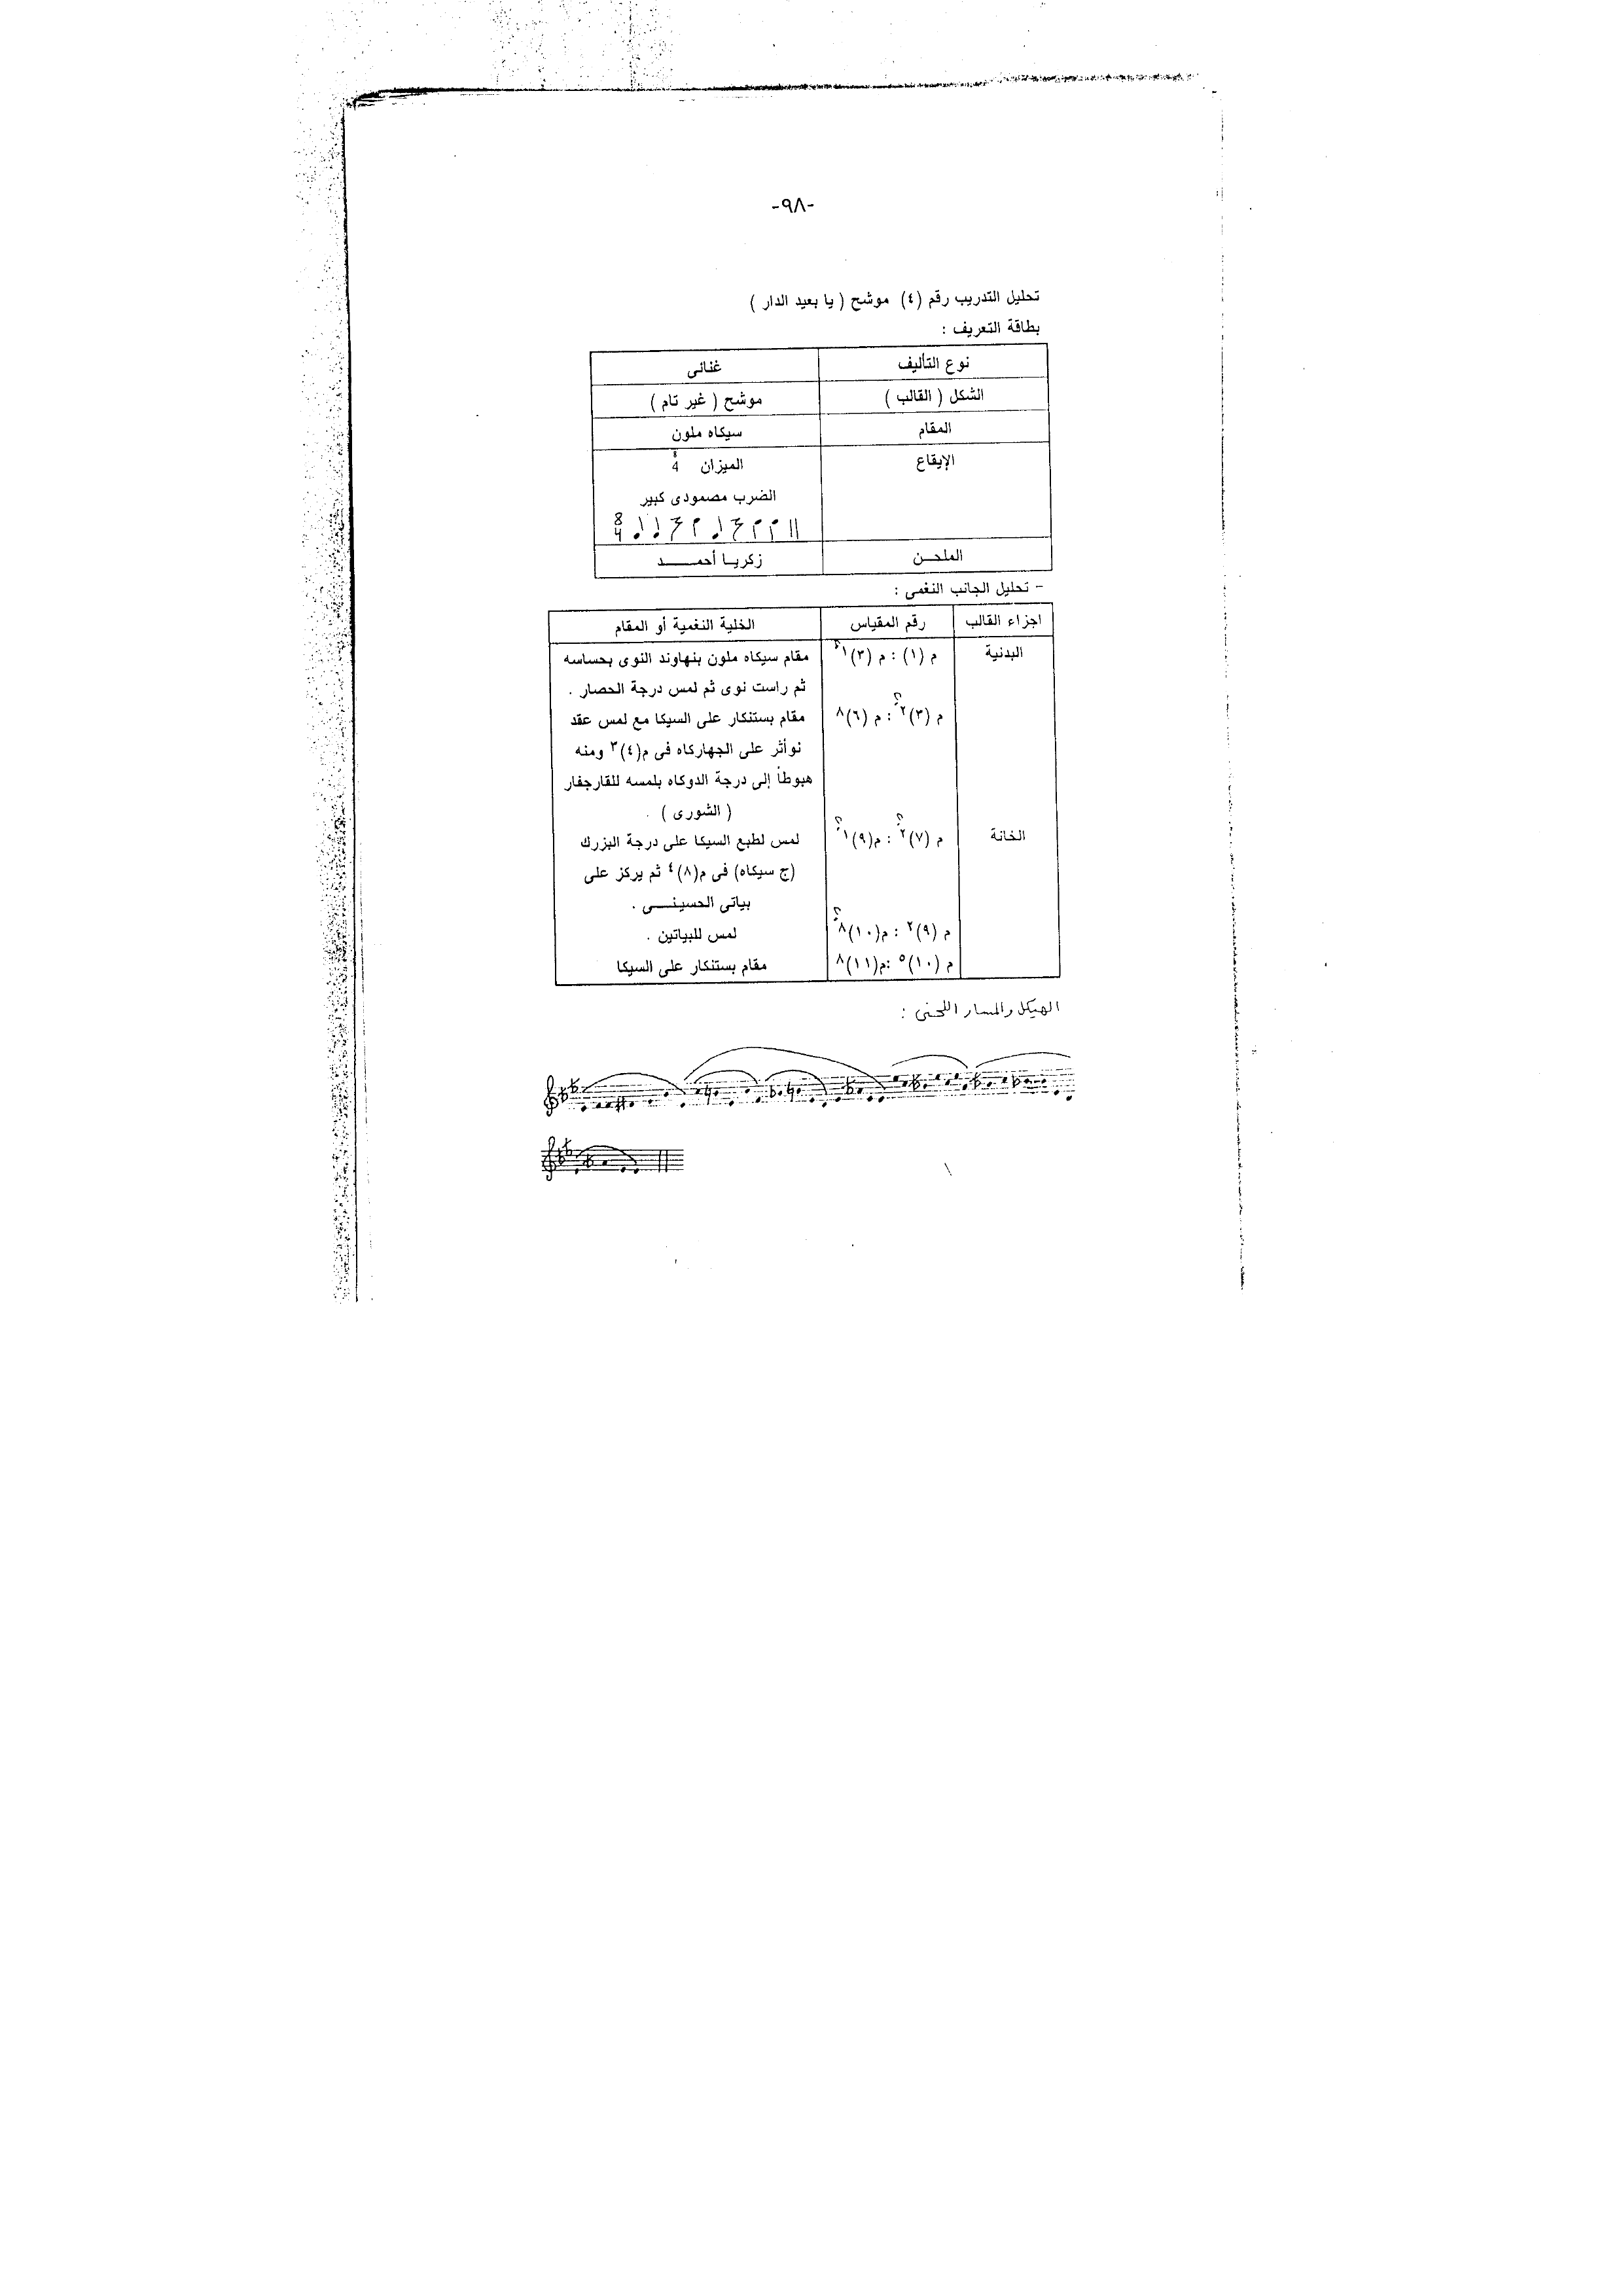 -٩٨-
تحليل التدريب رقم (٤) موشح ( يا بعيد الدار )
بطاقة التعريف :
نوع التأليف غنائى
الشكل ( القالب ) موشح ( غير تام )
المقام سيكاه ملون
الإيقاع الميزان 8/4
الضرب مصمودى كبير
8/4
الملحـن زكريـا أحمـــد
- تحليل الجانب النغمى :
اجزاء القالب رقم المقياس الخلية النغمية أو المقام
البدنية م (١) : م (٣)١ مقام سيكاه ملون بنهاوند النوى بحساسه
ثم راست نوى ثم لمس درجة الحصار .
م (٣)٢ : م (٦)٨ مقام بستنكار على السيكا مع لمس عقد
نوأثر على الجهاركاه فى م(٤)٣ ومنه
هبوطاً إلى درجة الدوكاه بلمسه للقارجفار
( الشورى ) .
الخانة م (٧)٢ : م(٩)١ لمس لطبع السيكا على درجة البزرك
(ج سيكاه) فى م(٨)٤ ثم يركز على
بياتى الحسينــى .
م (٩)٢ : م(١٠)٨ لمس للبياتين .
م (١٠)٥ :م(١١)٨ مقام بستنكار على السيكا
الهيكل والمسار اللحنى :